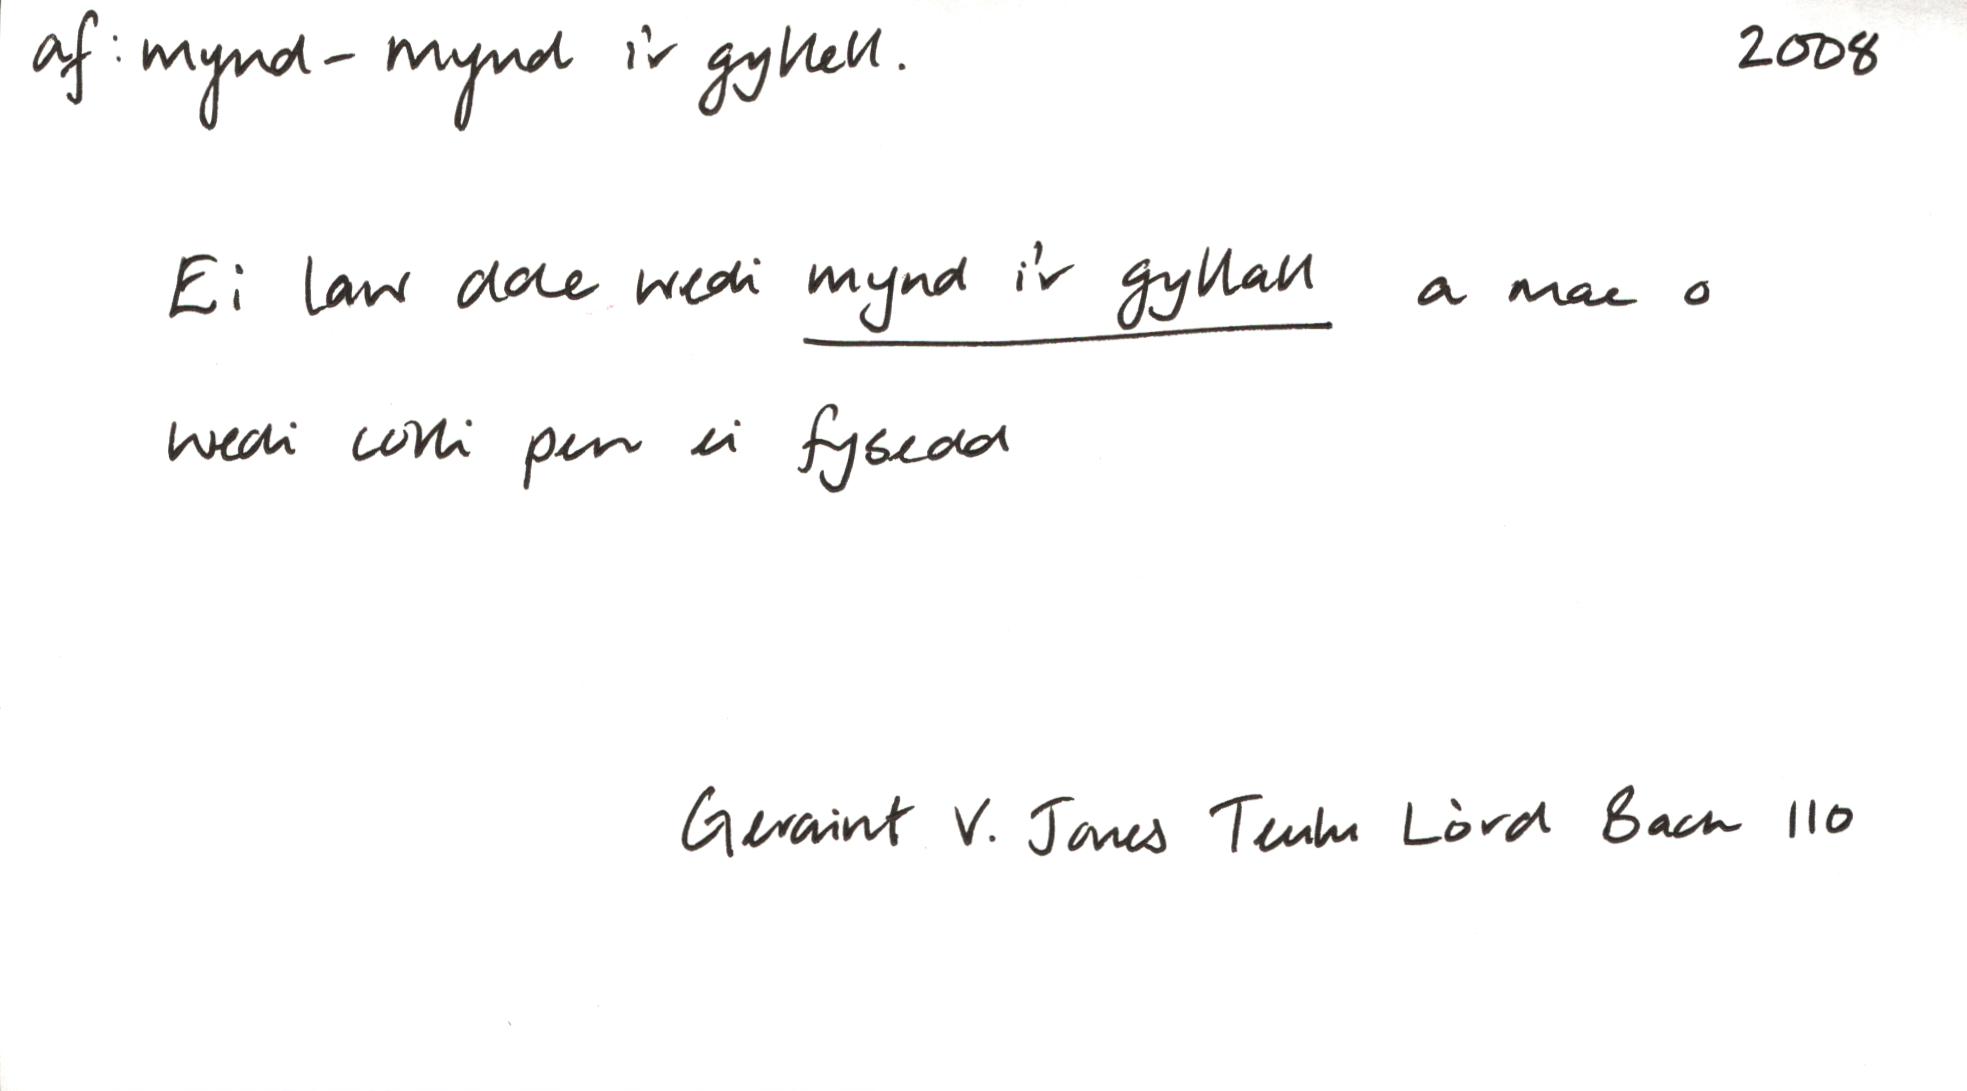 af: mynd - mynd i'r gyllell. 2008
Ei law dde wedi mynd i'r gyllall a mae o
wedi colli pen ei fysedd
Geraint V. Jones Teulu Lòrd Bach 110